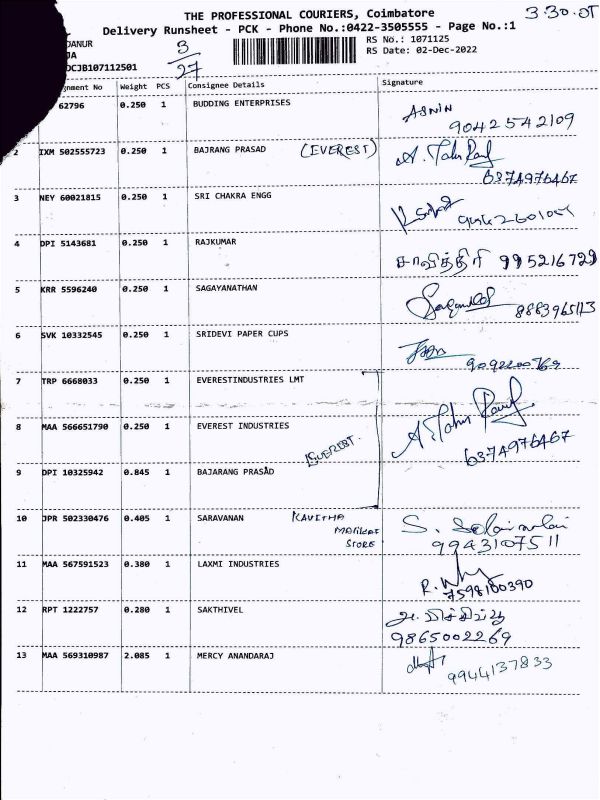 THE PROFESSIONAL COURIERS, Coimbatore
3.30.
Delivery Runsheet - PCK - Phone No.:0422-3505555 - Page No.:1
DANUR
JA
DCJB107112501
3
27
RS No.: 1071125
RS Date: 02-Dec-2022
gnment No Weight PCS Consignee Details Signature
62796 0.250 1 BUDDING ENTERPRISES
9042542109
2 IXM 502555723 0.250 1 BAJRANG PRASAD (EVEREST)
6374976467
3 NEY 60021815 0.250 1 SRI CHAKRA ENGG
4 DPI 5143681 0.250 1 RAJKUMAR
சாவித்திரி 995216729
5 KRR 5596240 0.250 1 SAGAYANATHAN
8883965113
6 SVK 10332545 0.250 1 SRIDEVI PAPER CUPS
7 TRP 6668033 0.250 1 EVERESTINDUSTRIES LMT
8 MAA 566651790 0.250 1 EVEREST INDUSTRIES
EVEREST
6374976467
9 DPI 10325942 0.845 1 BAJARANG PRASAD
10 JPR 502330476 0.405 1 SARAVANAN KAVITHA
STORE
9943107511
11 MAA 567591523 0.380 1 LAXMI INDUSTRIES
7598100390
12 RPT 1222757 0.280 1 SAKTHIVEL
9865002269
13 MAA 569310987 2.085 1 MERCY ANANDARAJ
9944137833